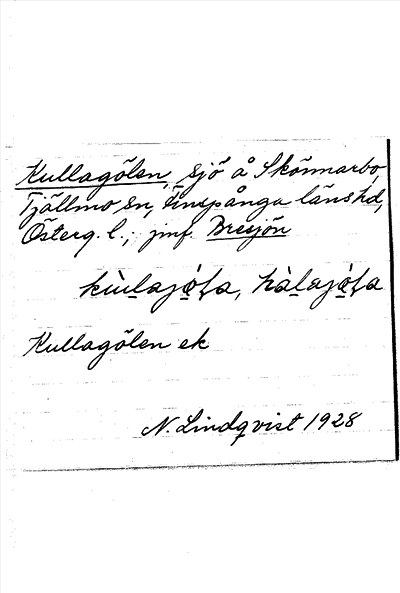 Kullagölen, sjö å Skönnarbo
Tjällmo sn, Finspånga länshd,
Österg. l.; jmf. Bresjön
Kullagölen ek
N. Lindqvist 1928